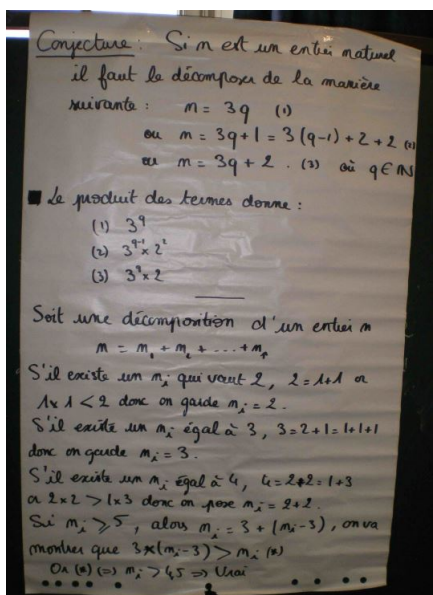 Conjecture : Si n est un entier naturel
il faut le décomposer de la manière
suivante : n = 3q (1)
ou n = 3q+1 = 3(q-1)+2+2 (2)
ou n = 3q+2 . (3) où q ∈ ℕ
■ Le produit des termes donne :
(1) 3^q
(2) 3^(q-1) × 2^2
(3) 3^q × 2
Soit une décomposition d'un entier n
n = n_1 + n_2 + .... + n_p
S'il existe un n_i qui vaut 2, 2 = 1+1 or
1×1 < 2 donc on garde n_i = 2.
S'il existe un n_i égal à 3, 3 = 2+1 = 1+1+1
donc on garde n_i = 3.
S'il existe un n_i égal à 4, 4 = 2+2 = 1+3
or 2×2 > 1×3 donc on pose n_i = 2+2.
Si n_i ⩾ 5, alors n_i = 3 + (n_i-3), on va
montrer que 3×(n_i-3) > n_i (*)
Or (*) (=) n_i > 4,5 => Vrai